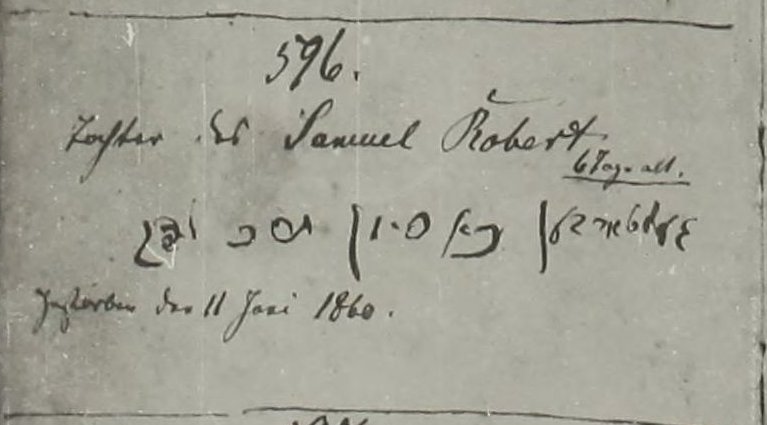 596.
Tochter des Samuel Robert
6 Tage alt.
כ״א סיון
Gestorben den 11 Juni 1860.